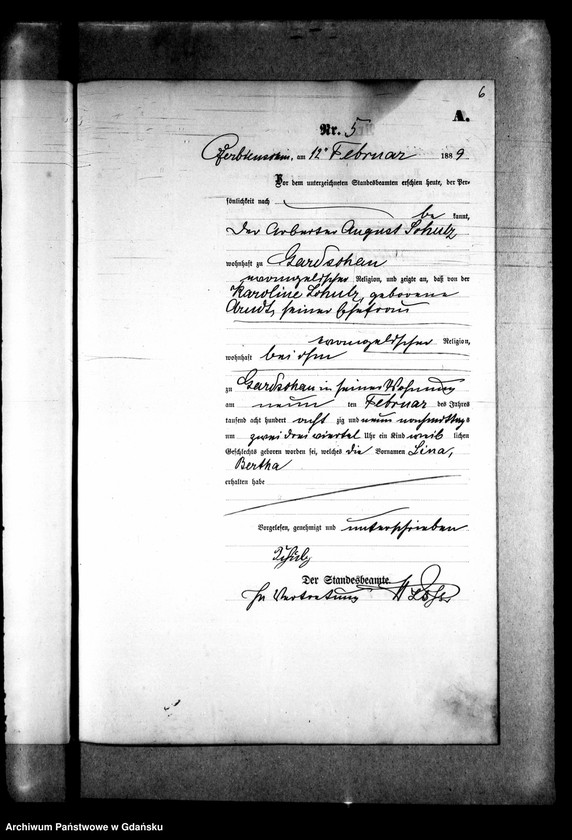 6
A.
Nr. 5
am 12n Februar 1889
Vor dem unterzeichneten Standesbeamten erschien heute, der Per-
sönlichkeit nach
be kannt,
der Arbeiter August Schulz
wohnhaft zu Gardschau
evangelischer Religion, und zeigte an, daß von der
Karoline Schulz, geborene
Arndt, seiner Ehefrau
evangelischer Religion,
wohnhaft bei ihm
zu Gardschau in seiner Wohnung
am neun ten Februar des Jahres
tausend acht hundert acht zig und neun nachmittags
um zwei drei viertel Uhr ein Kind weib lichen
Geschlechts geboren worden sei, welches die Vornamen Lina,
Bertha
erhalten habe
Vorgelesen, genehmigt und unterschrieben
Schulz
Der Standesbeamte.
In Vertretung
Archiwum Państwowe w Gdańsku